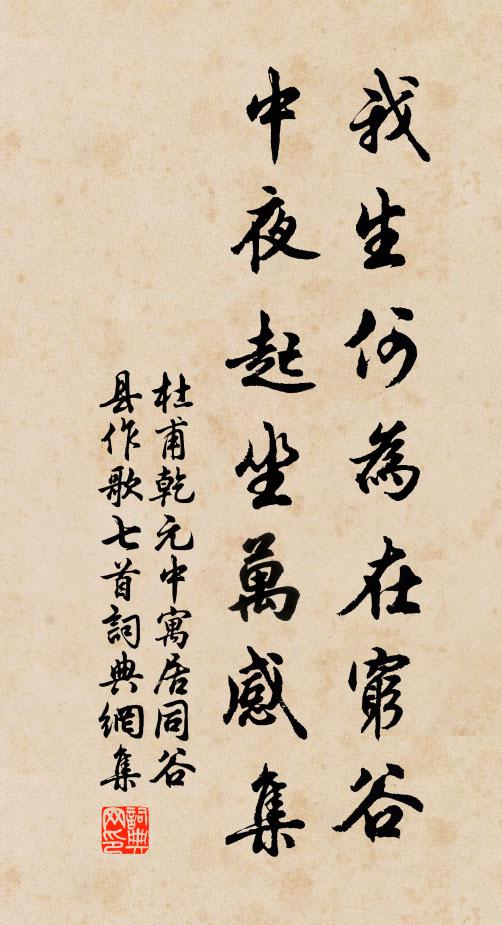 我生何為在窮谷
中夜起坐萬感集
杜甫乾元中寓居同谷
县作歌七首詞典網集
詞典网印